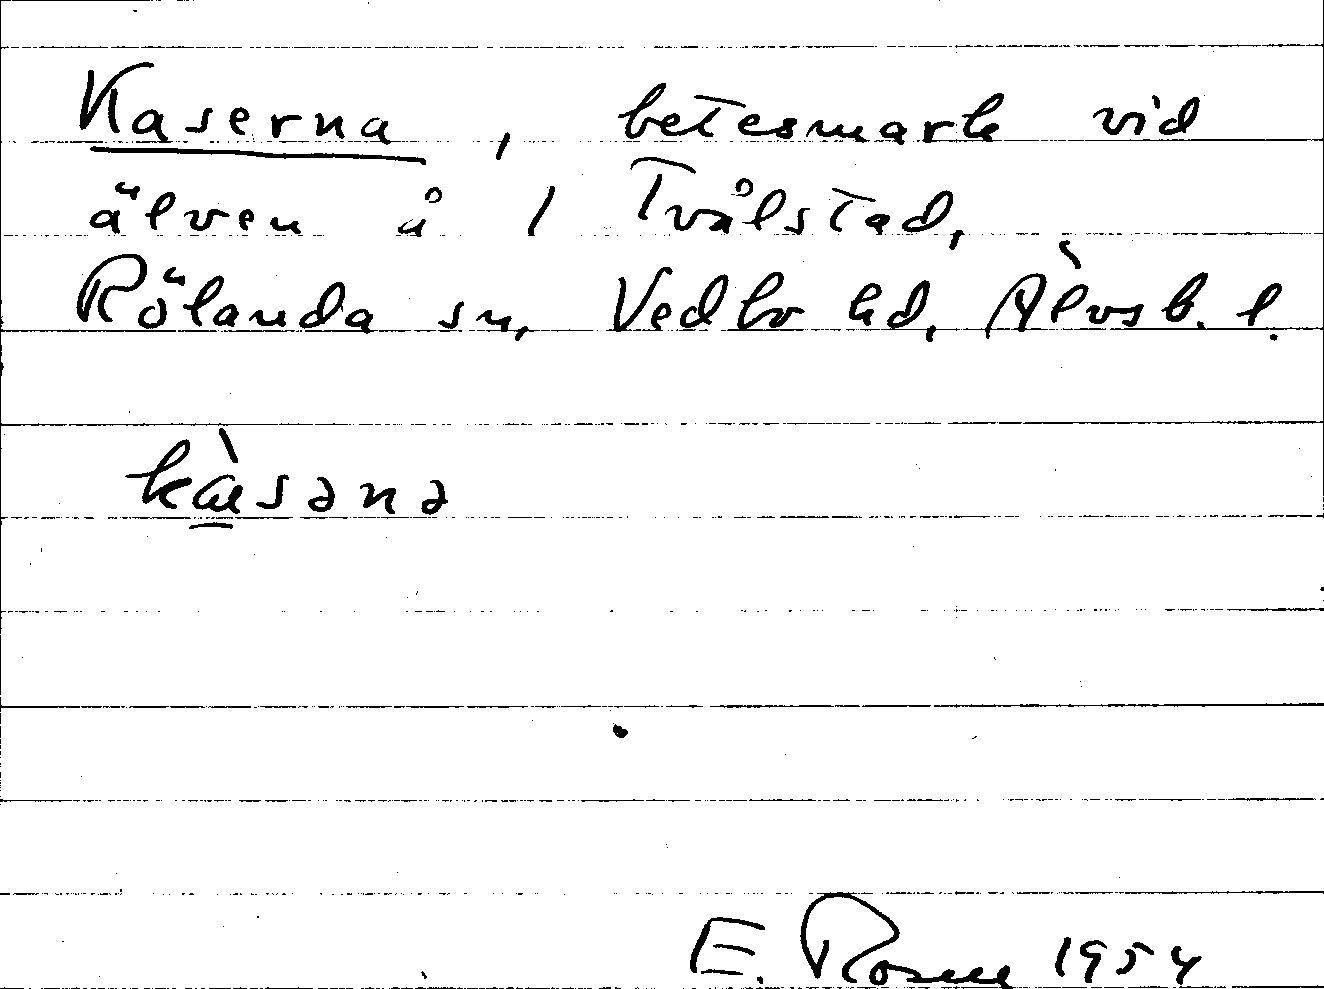 Kaserna, betesmark vid
älven å 1 Tvålstad,
Rölanda sn, Vedbo hd, Älvsb. l.
kàsənə
E. Rosen 1954